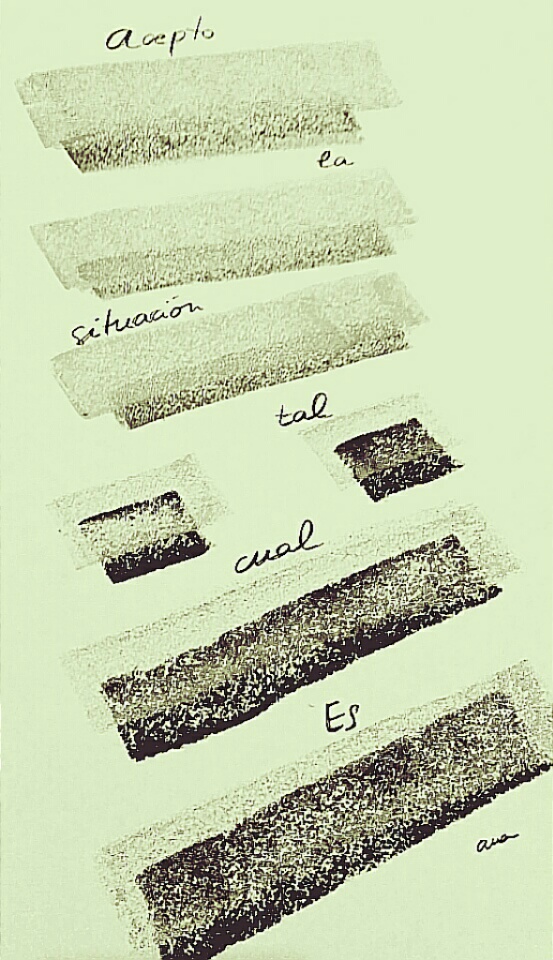 Acepto
la
situación
tal
cual
Es
ana